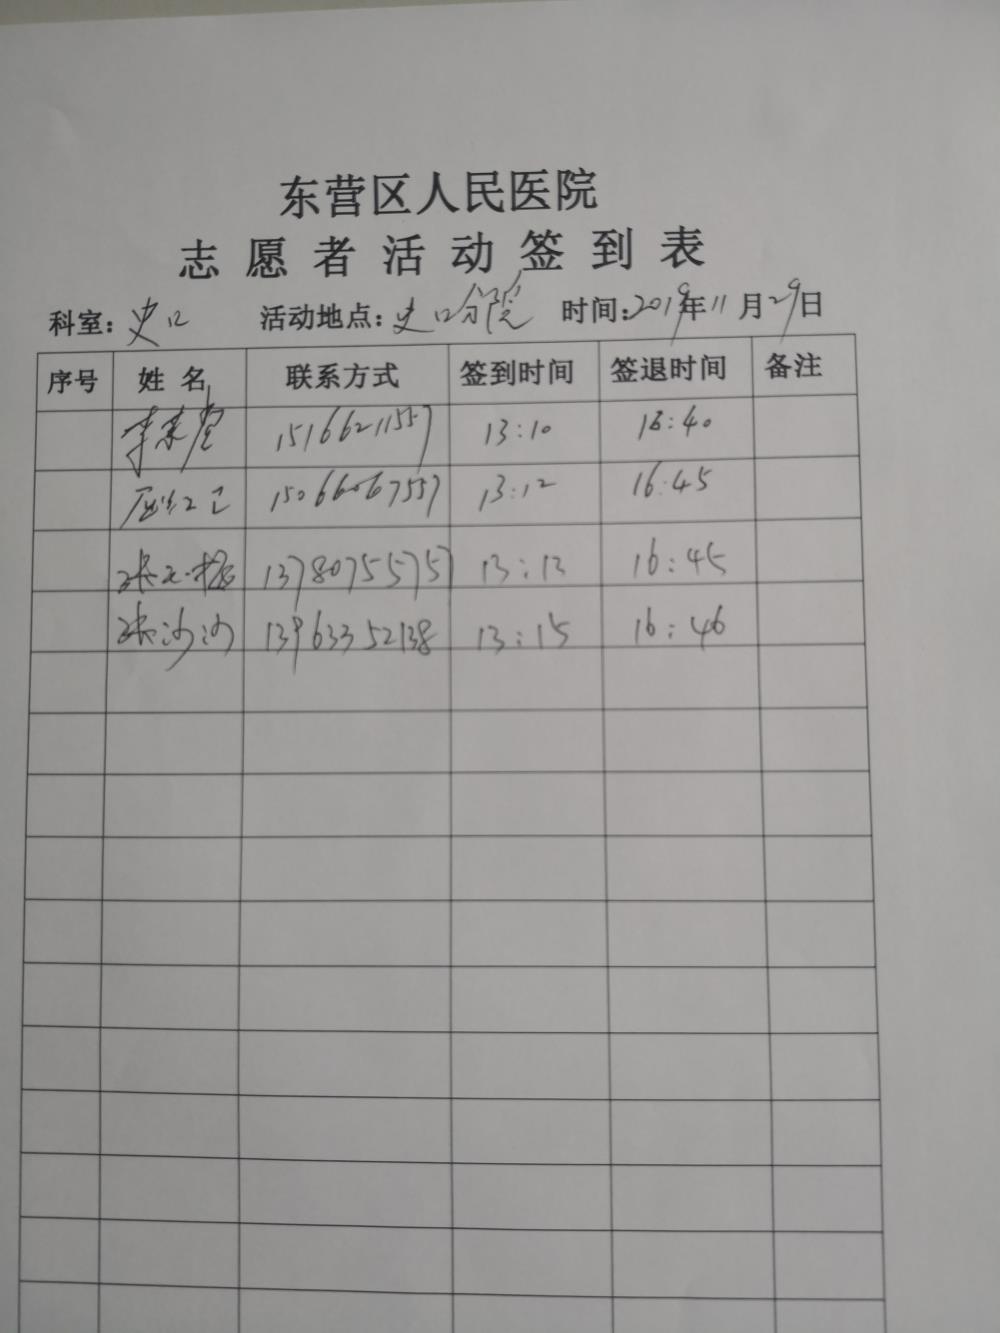 东营区人民医院
志愿者活动签到表
科室：史口 活动地点：史口分院 时间：2019年11月29日
序号 姓名 联系方式 签到时间 签退时间 备注
李来堂 15166211557 13:10 16:40
15066067557 13:12 16:45
13780755757 13:13 16:45
张沙沙 13963352138 13:15 16:46